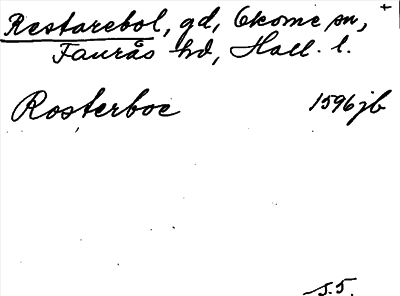 Restarebol, gd, Okome sn, +
Faurås hd, Hall. l.
Rosterboe 1596 jb
S.S.